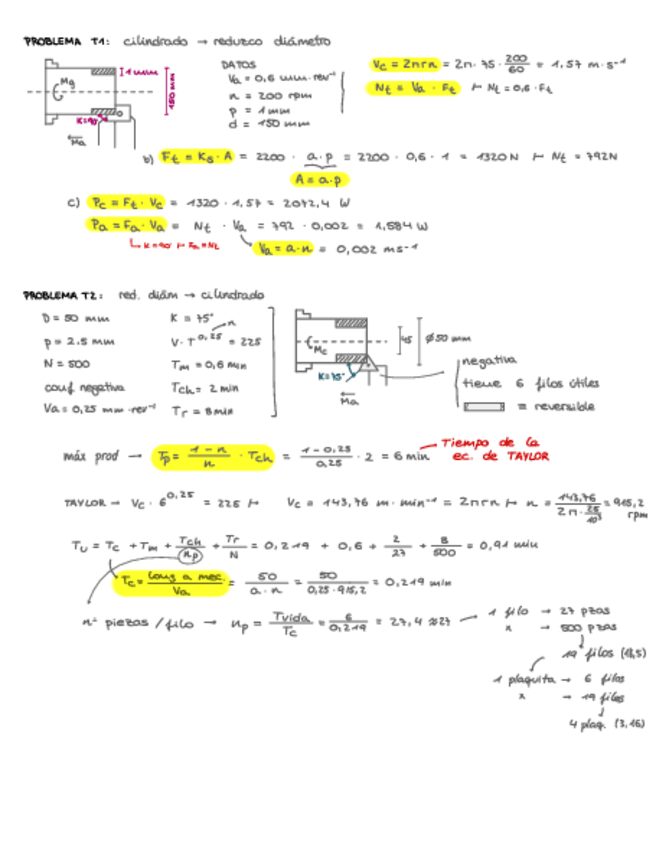 PROBLEMA T1: cilindrado → reduzco diámetro
Mg
1 mm
150 mm
K=90°
Ma
DATOS
Va = 0,6 mm·rev⁻¹
n = 200 rpm
p = 1 mm
d = 150 mm
Vc = 2πrn = 2π · 75 · 200/60 = 1,57 m·s⁻¹
Nt = Va · Ft ⊢ Nt = 0,6 · Ft
b) Ft = Ks · A = 2200 · a.p = 2200 · 0,6 · 1 = 1320 N ⊢ Nt = 792N
A = a.p
c) Pc = Ft · Vc = 1320 · 1,57 = 2072,4 W
Pa = Fa · Va = Nt · Va = 792 · 0,002 = 1,584 W
K = 90° ⊢ Fa = Nt
Va = a·n = 0,002 ms⁻¹
PROBLEMA T2: red. diám → cilindrado
D = 50 mm
p = 2.5 mm
N = 500
conf negativa
Va = 0,25 mm·rev⁻¹
K = 75°
n
V·T^0,25 = 225
Tm = 0,6 min
Tch = 2 min
Tr = 8 min
Mc
K=75°
Ma
45
Ø 50 mm
negativa
tiene 6 filos útiles
≡ reversible
máx prod → Tp = (1-n)/n · Tch = (1-0,25)/0,25 · 2 = 6 min
Tiempo de la
ec. de TAYLOR
TAYLOR → Vc · 6^0,25 = 225 ⊢ Vc = 143,76 m·min⁻¹ = 2πrn ⊢ n = 143,76/(2π · 25/10³) = 915,2 rpm
Tu = Tc + Tm + Tch/np + Tr/N = 0,219 + 0,6 + 2/27 + 8/500 = 0,91 min
Tc = long a mec./Va = 50/(a·n) = 50/(0,25·915,2) = 0,219 min
nº piezas/filo → np = Tvida/Tc = 6/0,219 = 27,4 ≈ 27
1 filo → 27 pzas
x → 500 pzas
19 filos (18,5)
1 plaquita → 6 filos
x → 19 filos
4 plaq. (3,16)